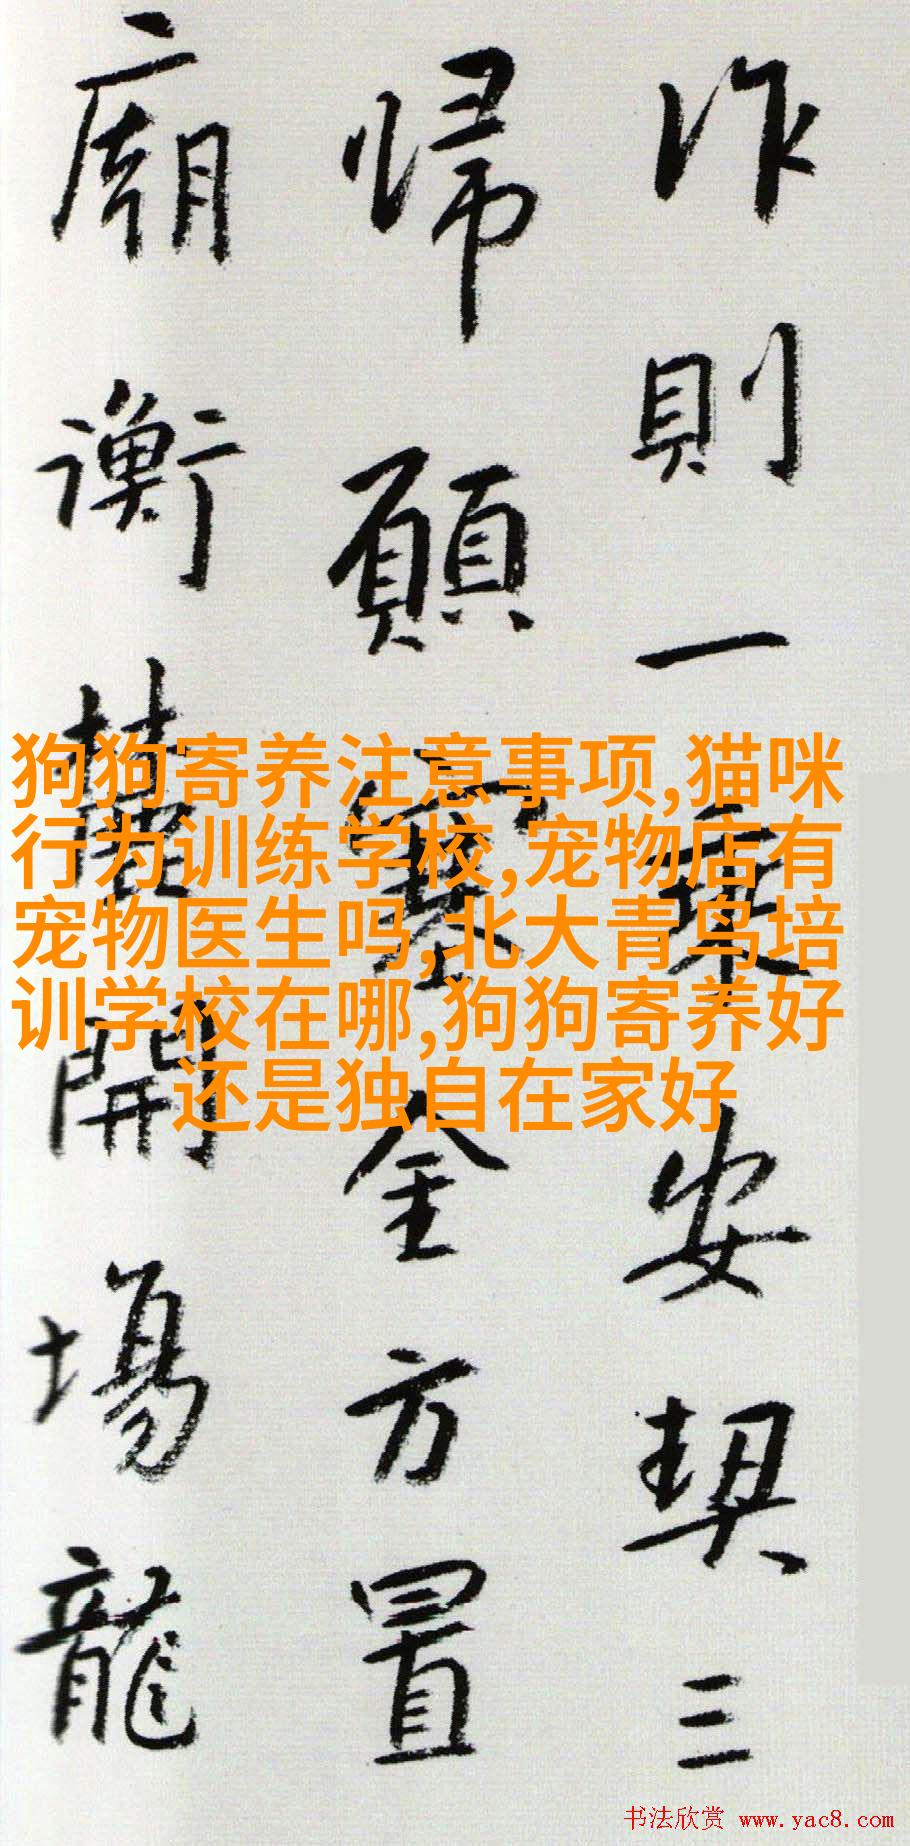 作則一乘安契三
歸願塞金方置
廟衡麓開場龍
狗狗寄养注意事项,猫咪
行为训练学校,宠物店有
宠物医生吗,北大青鸟培
训学校在哪,狗狗寄养好
还是独自在家好
书法欣赏 www.yac8.com